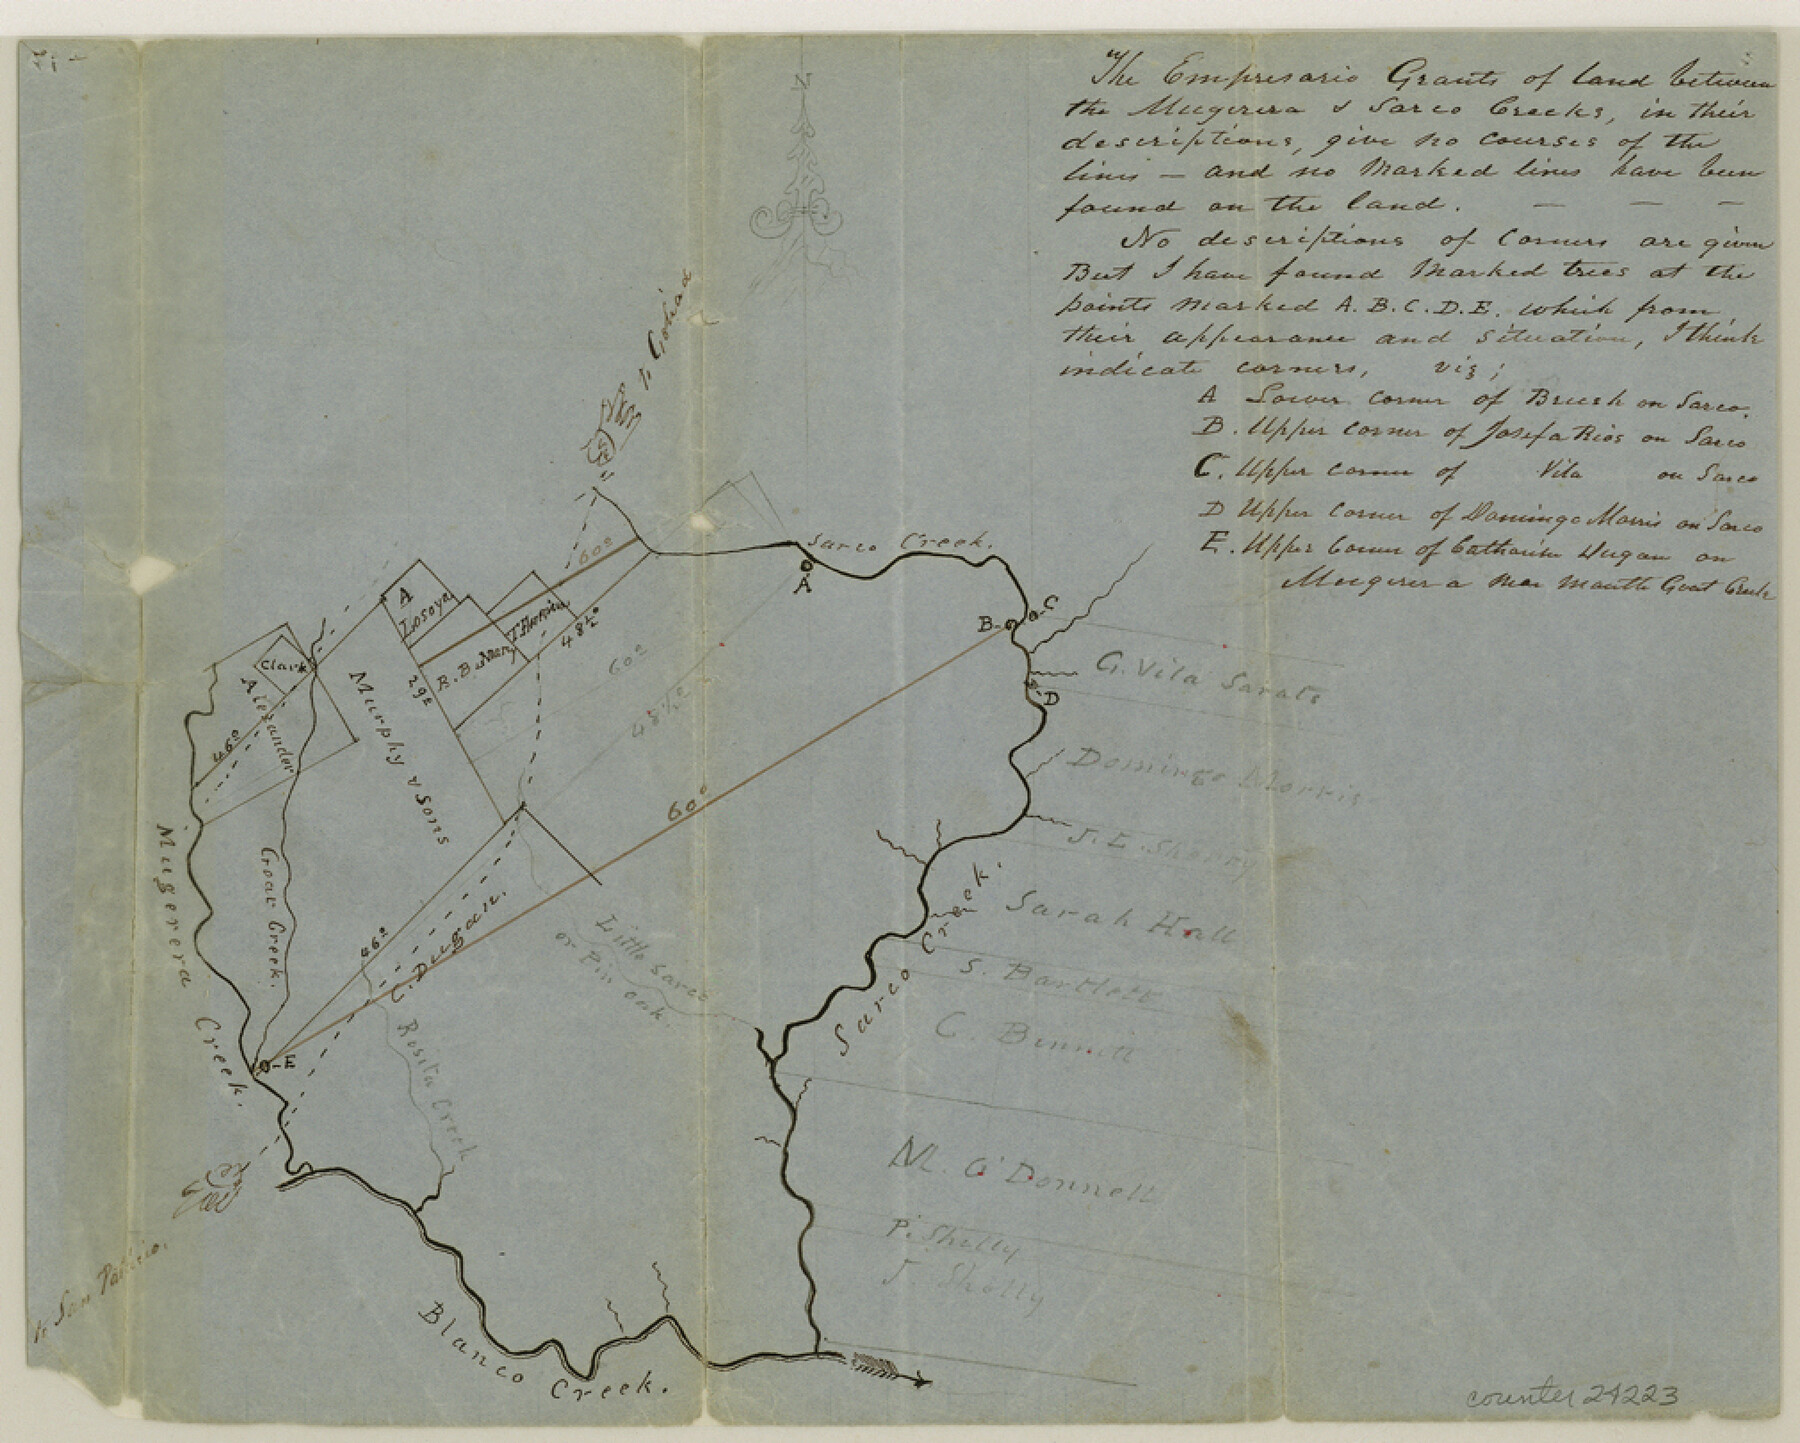 The Empresario Grants of land between
the Mugerera & Sarco Creeks, in their
descriptions, give no courses of the
lines — and no Marked lines have been
found on the land. — — —
No descriptions of Corners are given
But I have found Marked trees at the
points marked A.B.C.D.E. which from
their appearance and situation, I think
indicate corners, viz;
A Lower corner of Brush on Sarco.
B. Upper Corner of Josefa Rios on Sarco
C. Upper corner of Vila on Sarco
D Upper Corner of Domingo Morris on Sarco
E. Upper Corner of Catharine Dugan on
Mugerera near mouth Goat Creek
N
to Goliad
60°
Sarco Creek.
A
A
Losoya
R. B. Nary
48½°
29°
B
C
D
G. Vila Sarate
Clark
Alexander
46°
Murphy & Sons
60°
48½°
60°
Domingo Morris
Mugerera Creek.
Goat Creek.
J. E. Sherry
Sarah Hall
Sarco Creek.
S. Bartlett
C. Bennett
46°
C. Dugan.
Little Sarco
or Pin oak.
E
Rosita Creek
M. O'Donnell
P. Shelly
J. Shelly
to San Patricio.
Blanco Creek.
counter 24223